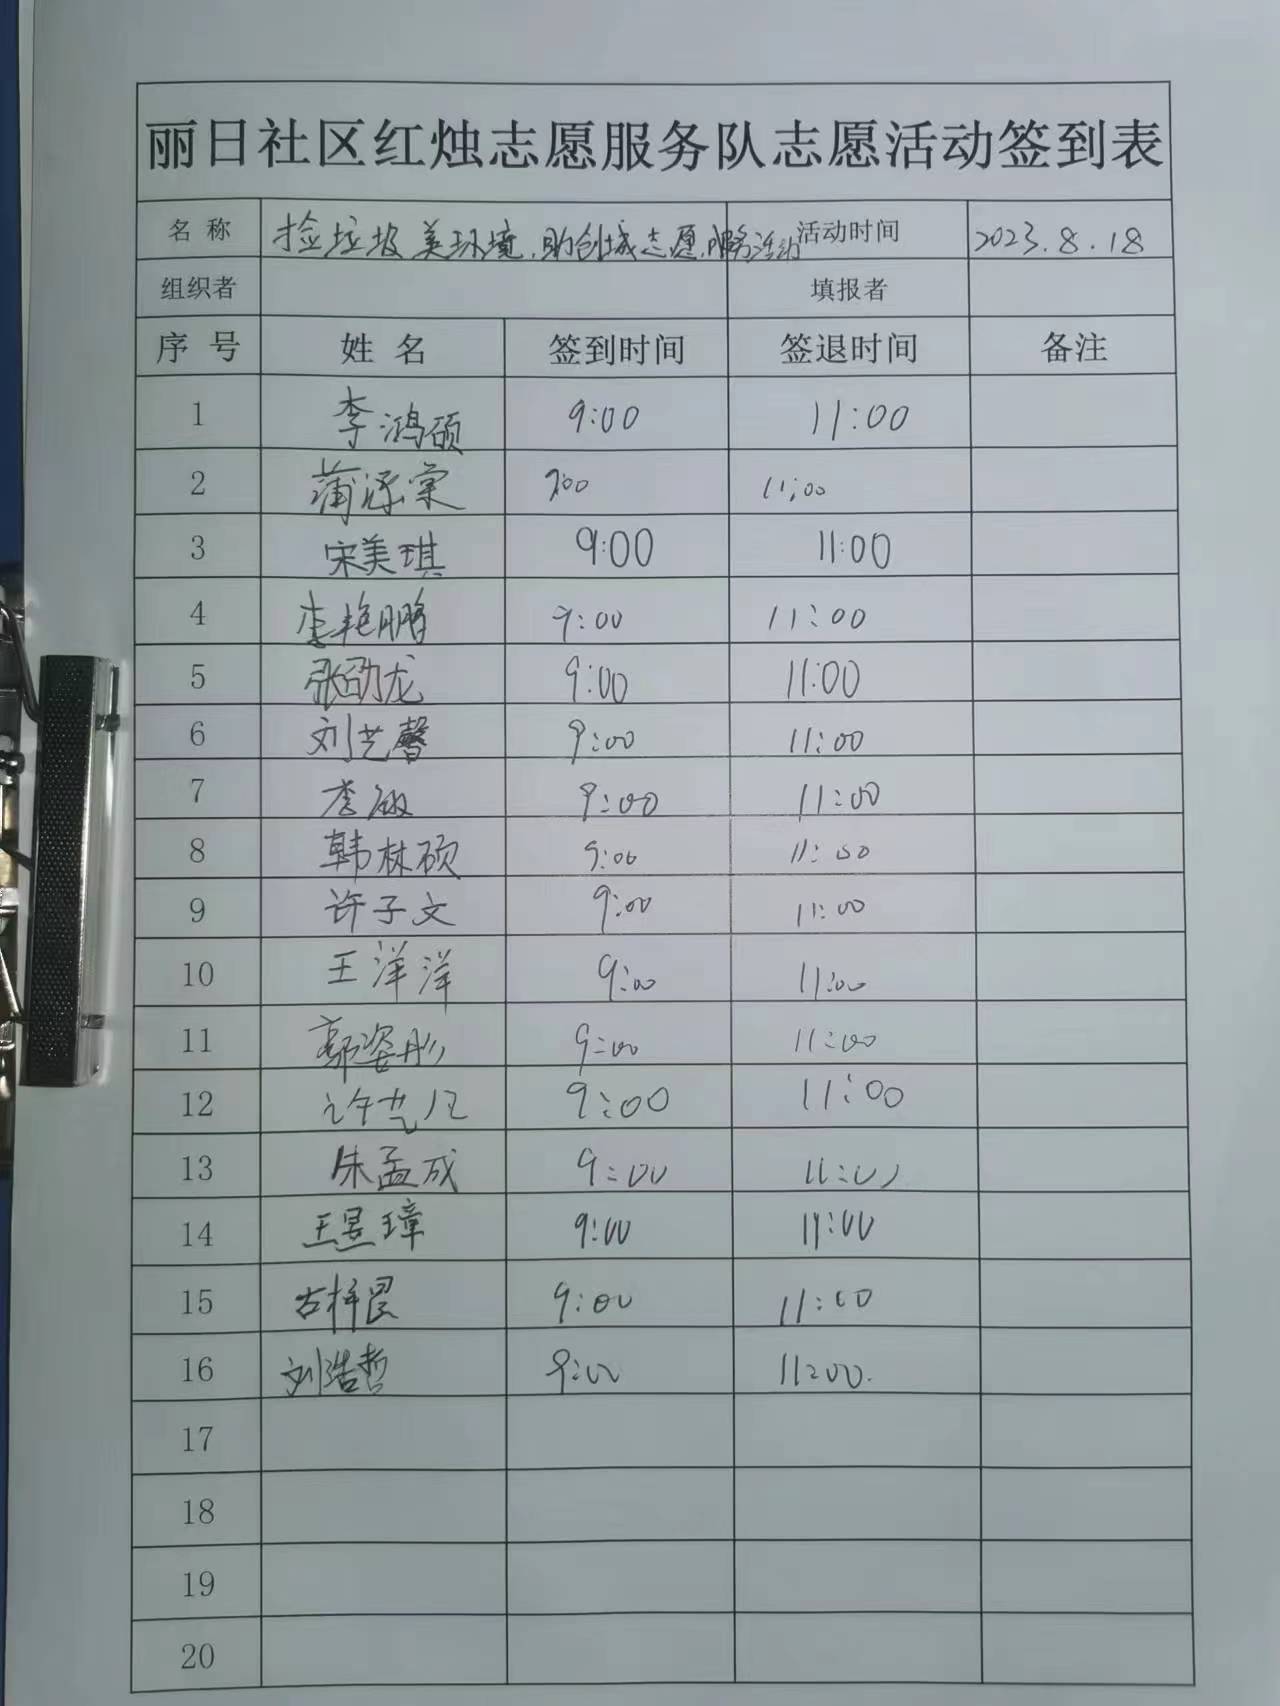 丽日社区红烛志愿服务队志愿活动签到表
名 称 捡垃圾美环境,助创城志愿服务活动 活动时间 2023.8.18
组织者 填报者
序 号 姓 名 签到时间 签退时间 备注
1 李鸿硕 9:00 11:00
2 蒲 9:00 11:00
3 宋美琪 9:00 11:00
4 李艳鹏 9:00 11:00
5 张劭龙 9:00 11:00
6 刘艺馨 9:00 11:00
7 李敏 9:00 11:00
8 韩林硕 9:00 11:00
9 许子文 9:00 11:00
10 王洋洋 9:00 11:00
11 郭姿彤 9:00 11:00
12 许艺 9:00 11:00
13 朱孟成 9:00 11:00
14 王昱璋 9:00 11:00
15 古梓 9:00 11:00
16 刘浩哲 9:00 11:00.
17
18
19
20